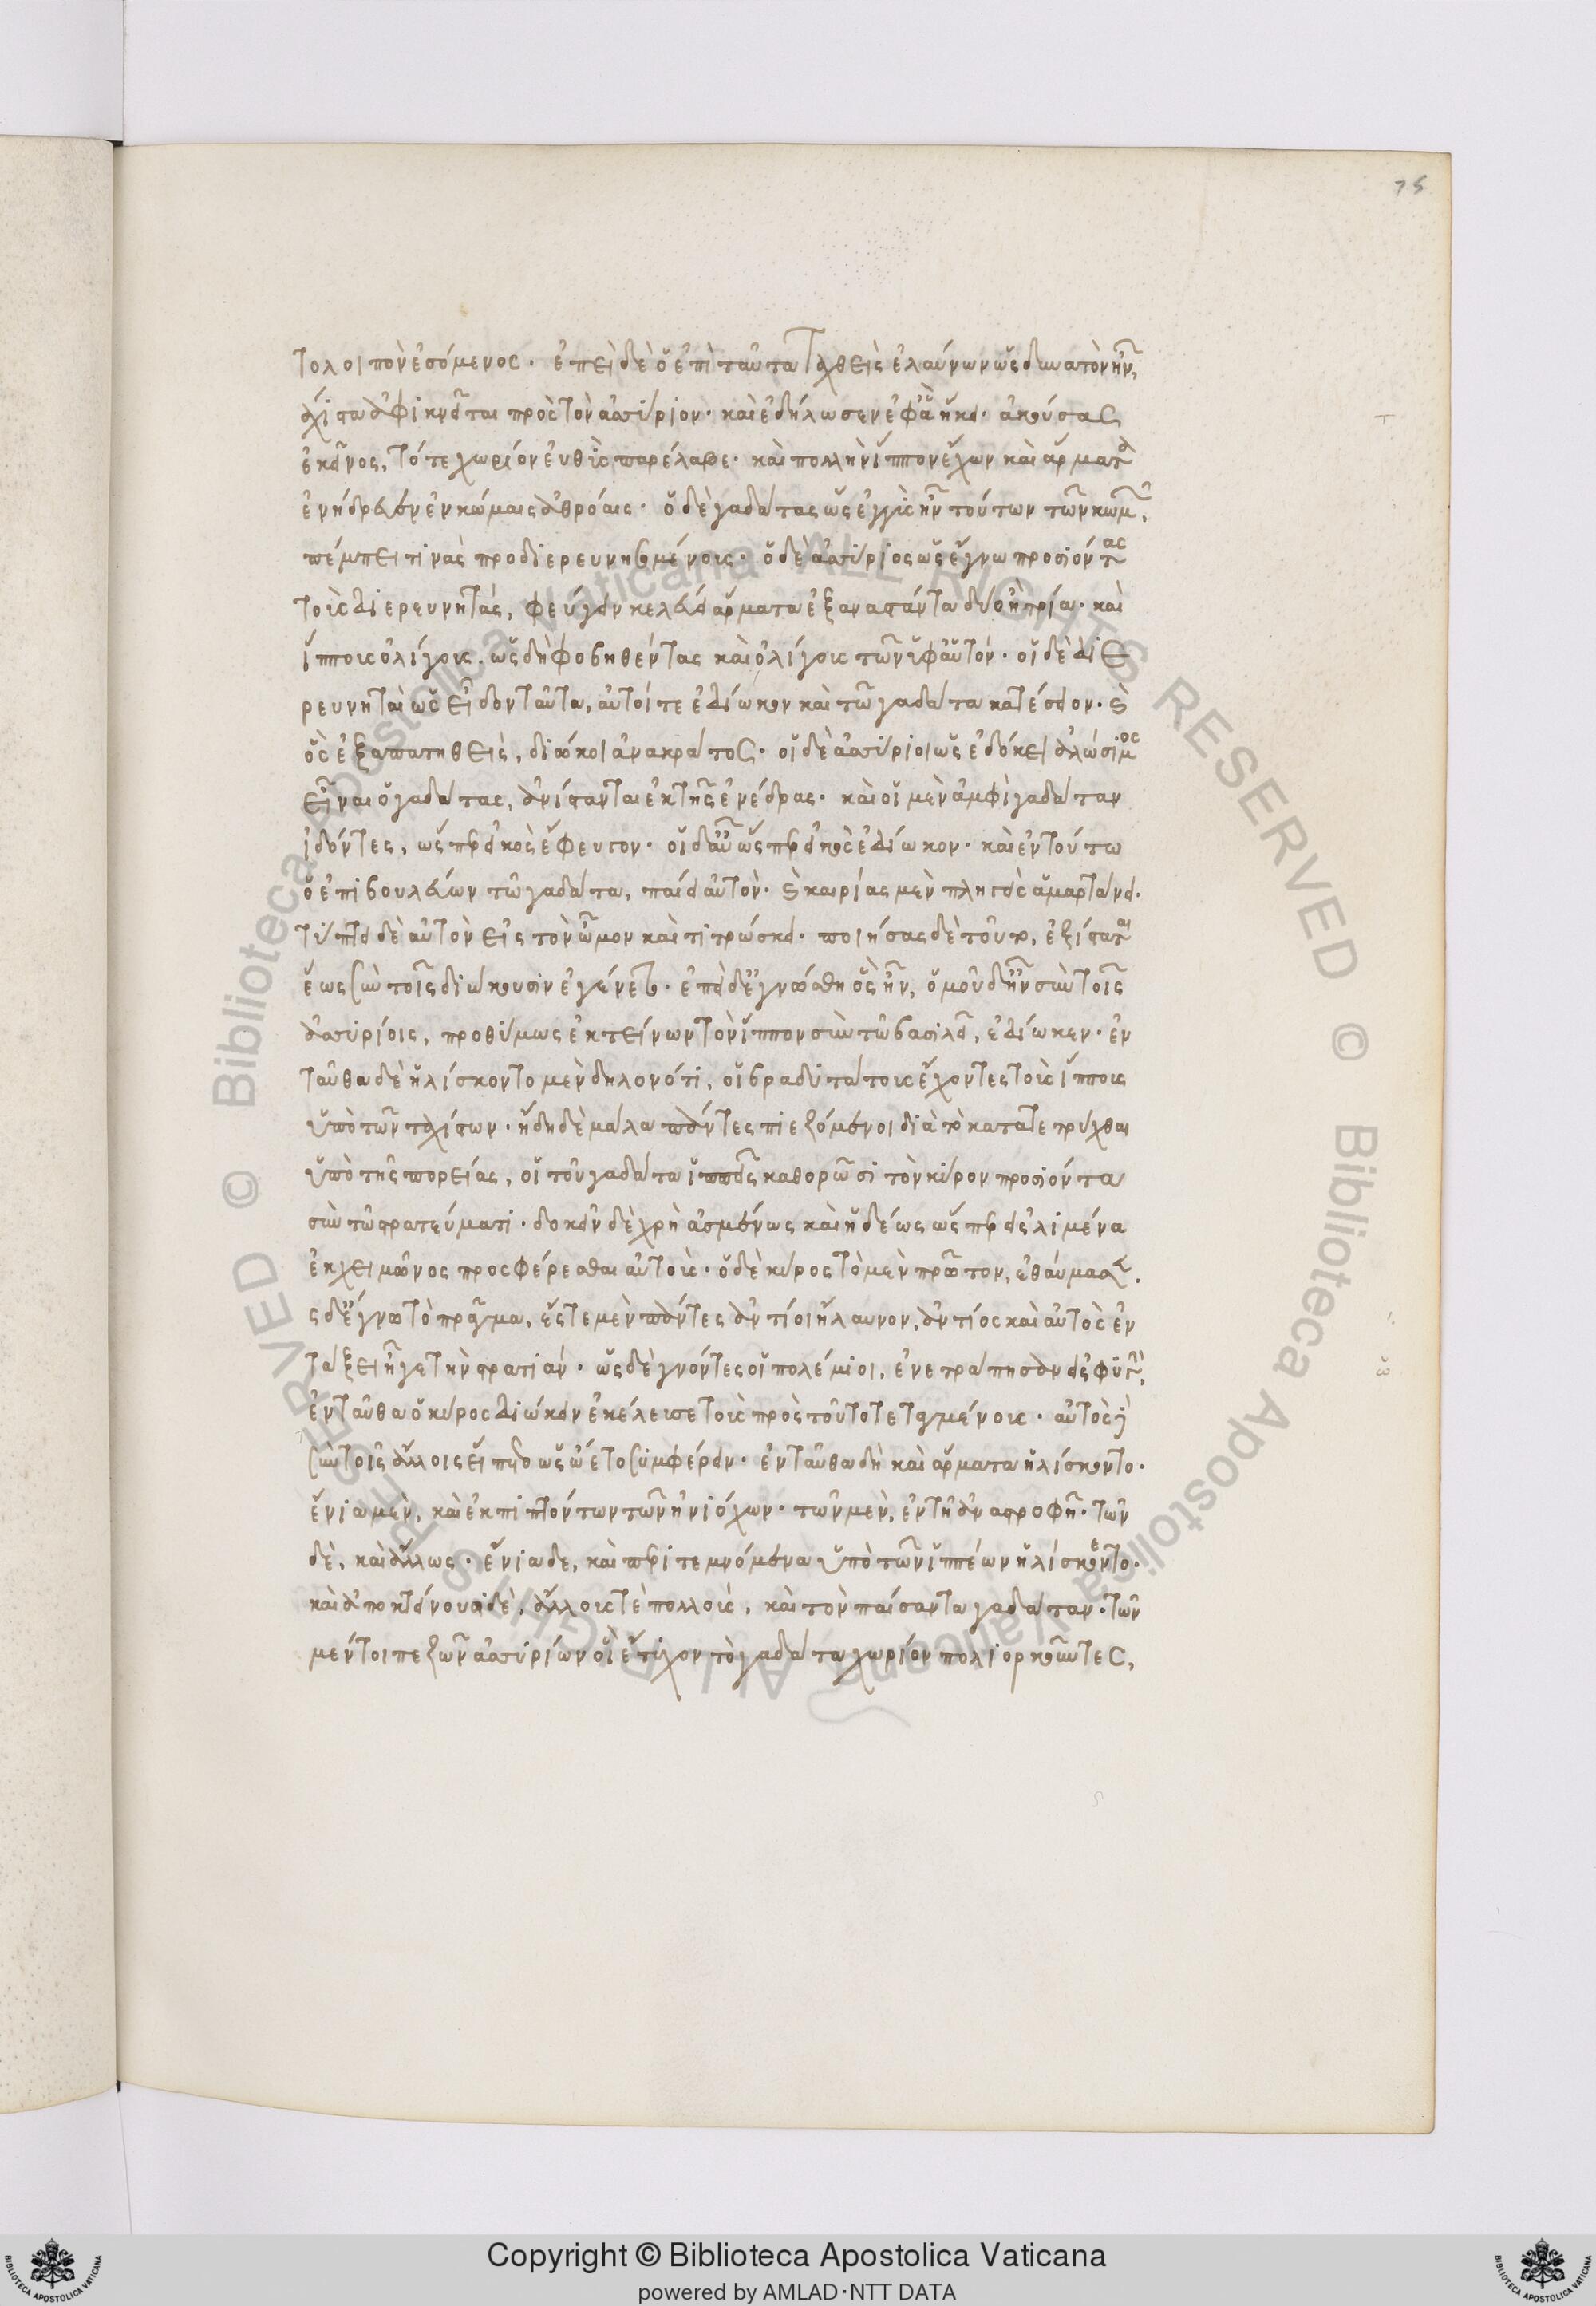 75
τολοιπὸν ἐσόμενος. ἐπεὶ δὲ ὁ ἐπὶ ταῦτα ταχθεὶς ἐλαύνων ὡς δυνατὸν ἦν
τάχιστα ἀφικνεῖται πρὸς τὸν ἀσσύριον. καὶ ἐδήλωσεν ἐφ' ἃ ἥκει. ἀκούσας
ἐκεῖνος, τό τε χωρίον εὐθὺς παρέλαβε. καὶ πολλὴν ἵππον ἔχων καὶ ἅρματα
ἐνήδρευσεν ἐν κώμαις ἀθρόαις. ὁ δὲ γαδάτας ὡς ἐγγὺς ἦν τούτων τῶν κωμῶν,
πέμπει τινὰς προδιερευνησομένους. ὁ δὲ ἀσσύριος ὡς ἔγνω προσιόντας
τοὺς διερευνητὰς, φεύγειν κελεύει ἅρματα ἐξαναστάντα δύο ἢ τρία. καὶ
ἵππους ὀλίγους. ὡς δὴ φοβηθέντας καὶ ὀλίγους τῶν ὑφ' αὑτόν. οἱ δὲ διε
ρευνηταὶ ὡς εἶδον ταῦτα, αὐτοί τε ἐδίωκον καὶ τῷ γαδάτα κατέσειον. καὶ
ὃς ἐξαπατηθεὶς, διώκει ἀνακράτος. οἱ δὲ ἀσσύριοι ὡς ἐδόκει ἁλώσιμος
εἶναι ὁ γαδάτας, ἀνίστανται ἐκ τῆς ἐνέδρας. καὶ οἱ μὲν ἀμφὶ γαδάταν
ἰδόντες, ὥσπερ εἰκὸς ἔφευγον. οἱ δ' αὖ ὥσπερ εἰκὸς ἐδίωκον. καὶ ἐν τούτω
ὁ ἐπιβουλεύων τῷ γαδάτα, παίει αὐτὸν. καὶ καιρίας μὲν πληγῆς ἁμαρτάνει.
τύπτει δὲ αὐτὸν εἰς τὸν ὦμον καὶ τιτρώσκει. ποιήσας δὲ τοῦτο, ἐξίσταται
ἕως σὺν τοῖς διώκουσιν ἐγένετο. ἐπεὶ δ' ἐγνώσθη ὃς ἦν, ὁμοῦ δὴ ἦν σὺν τοῖς
ἀσσυρίοις, προθύμως ἐκτείνων τὸν ἵππον σὺν τῷ βασιλεῖ, ἐδίωκεν. ἐν
ταῦθα δὲ ἡλίσκοντο μὲν δηλονότι, οἱ βραδυτάτους ἔχοντες τοὺς ἵππους
ὑπὸ τῶν ταχίστων. ἤδη δὲ μάλα πάντες πιεζόμενοι διὰ τὸ κατατετρύχθαι
ὑπὸ τῆς πορείας, οἱ τοῦ γαδάτα ἱππεῖς καθορῶσι τὸν κύρον προσιόντα
σὺν τῷ στρατεύματι. δοκεῖν δὲ χρὴ ἀσμένως καὶ ἡδέως ὥσπερ εἰς λιμένα
ἐκ χειμῶνος προσφέρεσθαι αὐτοὺς. ὁ δὲ κύρος τὸ μὲν πρῶτον, ἐθαύμασεν.
ὡς δ' ἔγνω τὸ πρᾶγμα, ἔστε μὲν πάντες ἀντίοι ἤλαυνον, ἀντίος καὶ αὐτὸς ἐν
τάξει ἦγε τὴν στρατιάν. ὡς δὲ γνόντες οἱ πολέμιοι, ἐνετράπησαν εἰς φυγὴν,
ἐνταῦθα ὁ κύρος διώκειν ἐκέλευσε τοὺς πρὸς τοῦτο τεταγμένους. αὐτὸς δὲ
σὺν τοῖς ἄλλοις εἵπετο ὡς ᾤετο συμφέρειν. ἐνταῦθα δὴ καὶ ἅρματα ἡλίσκοντο.
ἔνια μὲν, καὶ ἐκπιπτόντων τῶν ἡνιόχων. τῶν μὲν, ἐν τῇ ἀναστροφῇ. τῶν
δὲ, καὶ ἄλλως. ἔνια δε, καὶ περιτεμνόμενα ὑπὸ τῶν ἱππέων ἡλίσκοντο.
καὶ ἀποκτείνουσι δὲ, ἄλλους τὲ πολλοὺς, καὶ τὸν παίσαντα γαδάταν. τῶν
μέντοι πεζῶν ἀσσυρίων οἳ ἔτυχον τὸ γαδάτα χωρίον πολιορκοῦντες,
Copyright © Biblioteca Apostolica Vaticana
powered by AMLAD·NTT DATA